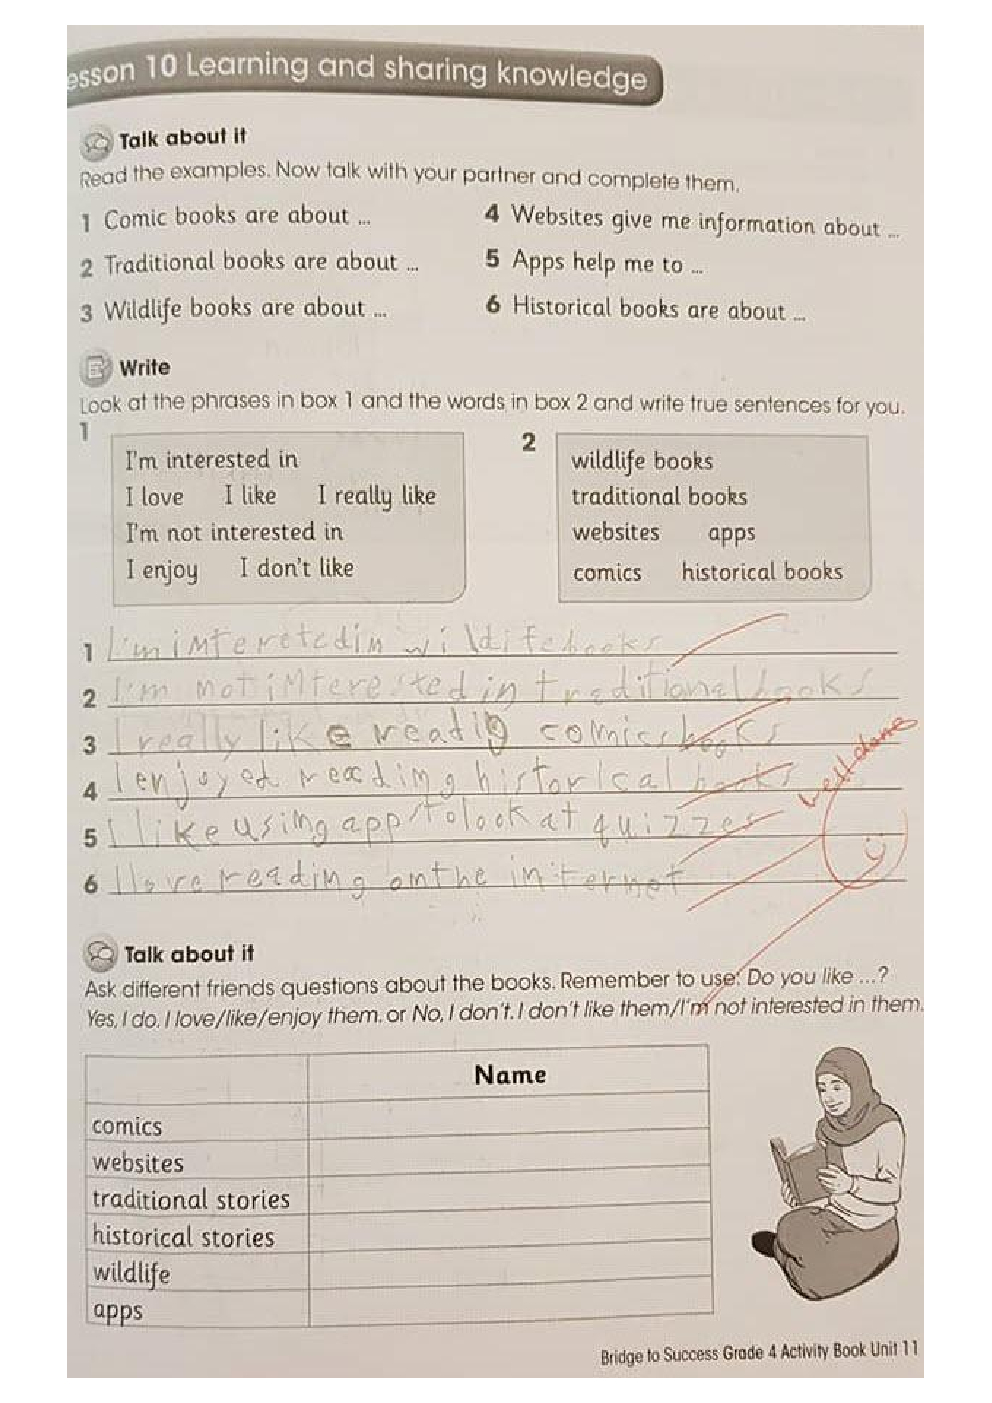 esson 10 Learning and sharing knowledge
Talk about it
Read the examples. Now talk with your partner and complete them.
1 Comic books are about ...
4 Websites give me information about ...
2 Traditional books are about ...
5 Apps help me to ...
3 Wildlife books are about ...
6 Historical books are about ...
Write
Look at the phrases in box 1 and the words in box 2 and write true sentences for you.
1
I'm interested in
I love I like I really like
I'm not interested in
I enjoy I don't like
2
wildlife books
traditional books
websites apps
comics historical books
1 I'm imteretedin wildifebooks
2 I'm motimterested in traditionalbooks
3 I really like readig comicsbooks
4 I enjoyed reading historical books
5 I like using app/to look at quizzes
6 I love reading omthe internet
well done
Talk about it
Ask different friends questions about the books. Remember to use: Do you like ...?
Yes, I do. I love/like/enjoy them. or No, I don't. I don't like them/I'm not interested in them.
Name
comics
websites
traditional stories
historical stories
wildlife
apps
Bridge to Success Grade 4 Activity Book Unit 11